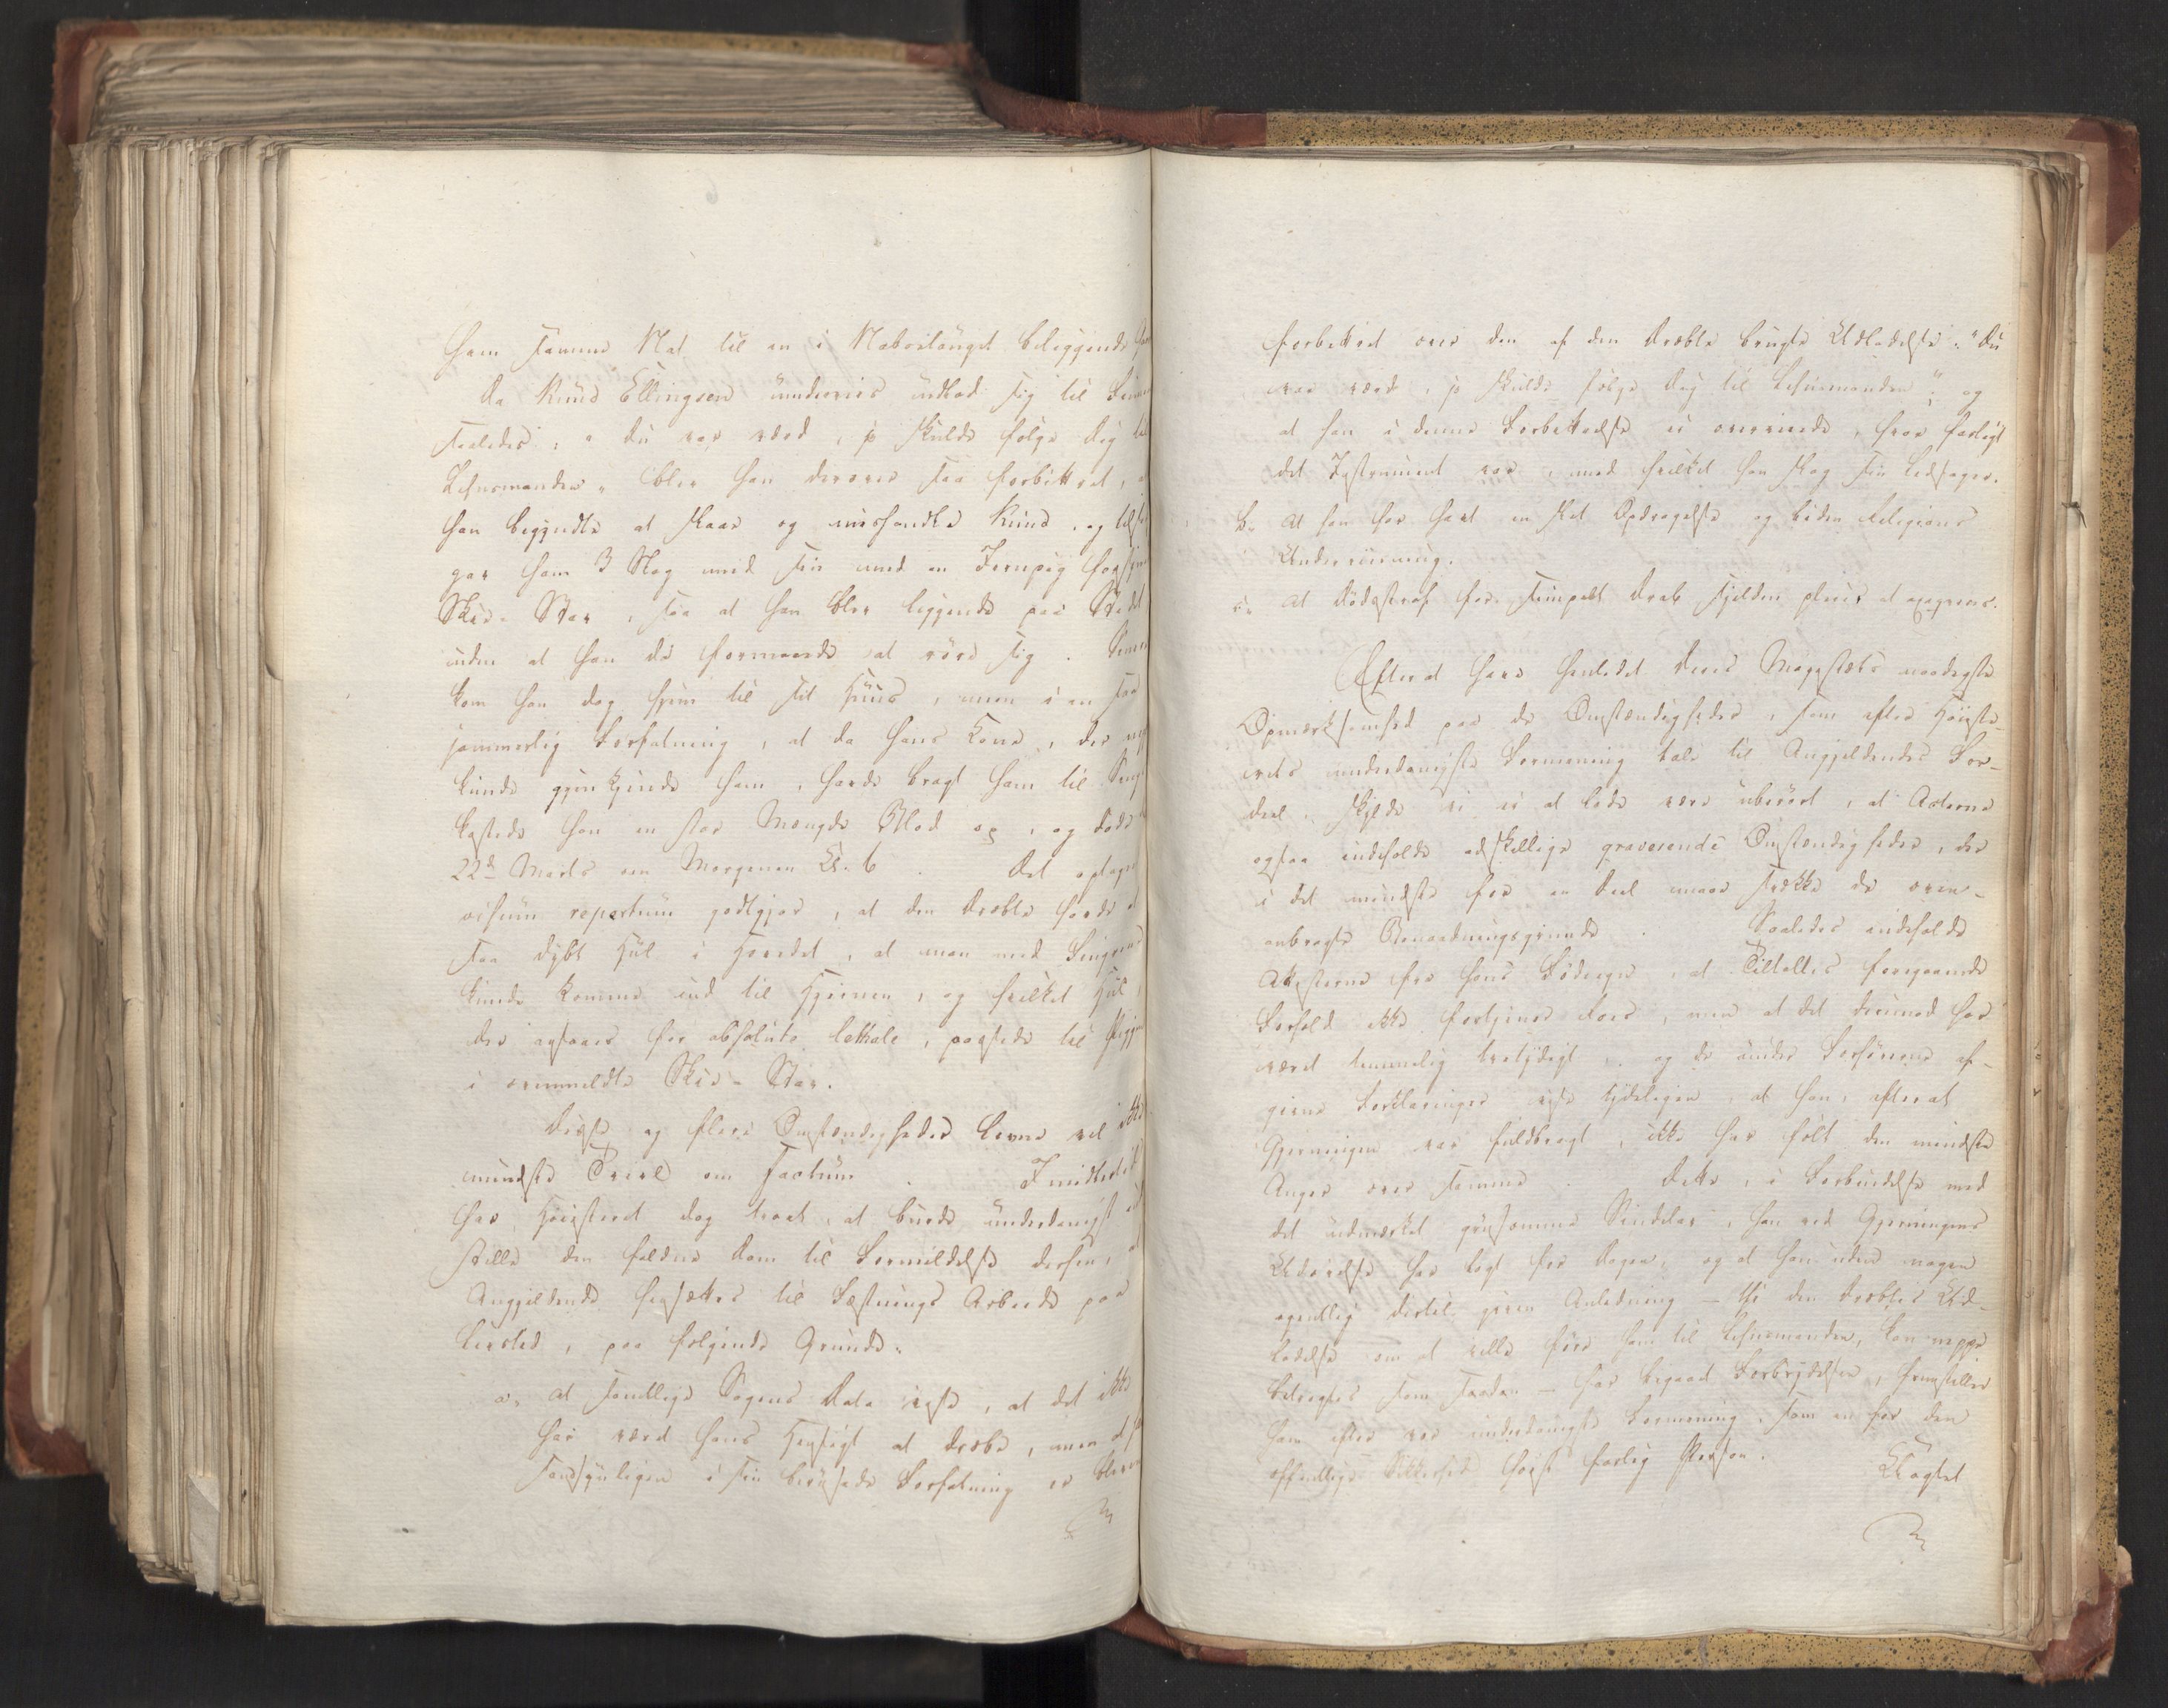 ham samme Nat til en i Nabolauget beliggende
Da Knud Ellingsen underveis udlod sig til Simen
saaledes: "Du var værd, jeg skulde følge Dig til
Lehnsmanden" blev han derover saa forbittret, at
han begyndte at slaae og mishandle Knud, og tilsidst
gav ham 3 Slag med sin med en Jernpig forsynede
Skie-Stav, saa at han blev liggende paa Stedet
uden at han da formaaede at røre sig. Senere
kom han dog hjem til sit Huus, men i en saa
jammerlig Forfatning, at da hans Kone, der neppe
kunde gjenkjende ham, havde bragt ham til Sengs
kastede han en stor Mængde Blod op, og døde
22de Marts om Morgenen Kl. 6. Det optagne
visum repertum godtgjør, at den Dræbte havde et
saa dybt Hul i Hovedet, at man med Fingeren
kunde komme ind til Hjernen, og hvilket Hul,
der ansaaes for absolute lethale, passede til Piggen
i ovenmeldte Skie-Stav.
Disse og flere Omstændigheder levne vel ikke
mindste Tvivl om Factum. Imidlertid
har Høiesteret dog troet, at burde underdanigst
stille den faldne Dom til Formildelse derhen, at
Angjeldende hensættes til Fæstnings Arbeide paa
Livstid, paa følgende Grunde:
a, at samtlige Sagens Data vise, at det ikke
har været hans Hensigt at dræbe, men at han
sandsynligen i sin berusede Forfatning er bleven
forbittret over den af den Dræbte brugte Udladelse: "Du
var værd, jeg skulde følge Dig til Lehnsmanden"; og
at han i denne Forbittrelse ei overveiede, hvor farligt
det Instrument var, med hvilket han slog sin Ledsager.
b, At han har havt en slet Opdragelse og liden Religions
Underviisning.
c, At Dødsstraf for simpelt Drab sjelden pleier at exeqveres.
Efterat have henledet Deres Majestæts naadigste
Opmærksomhed paa de Omstændigheder, som efter Høieste-
rets underdanigste Formening tale til Angjeldendes For-
deel, skylde vi ei at lade være uberørt, at Acterne
ogsaa indeholde adskillige graverende Omstændigheder, der
i det mindste for en Deel maae svække de oven-
anbragte Benaadningsgrunde. Saaledes indeholde
Attesterne fra hans Fødeegn, at Tiltaltes foregaaende
Forhold ikke fortjener Roes, men at det derimod har
været temmelig tvetydigt, og de under Forhørene af-
givne Forklaringer vise tydeligen, at han, efterat
Gjerningen var fuldbragt, ikke har følt den mindste
Anger over samme. Dette, i Forbindelse med
det udmærket grusomme Sindelav, han ved Gjerningens
Udøvelse har lagt for Dagen, og at han uden nogen
egentlig dertil given Anledning - thi den Dræbtes Ud-
ladelse om at ville føre ham til Lehnsmanden, kan neppe
betragtes som saadan - har begaaet Forbrydelsen, fremstiller
ham efter vor underdanigste Formening, som en for den
offentlige Sikkerhed høist farlig Person.
Uagtet